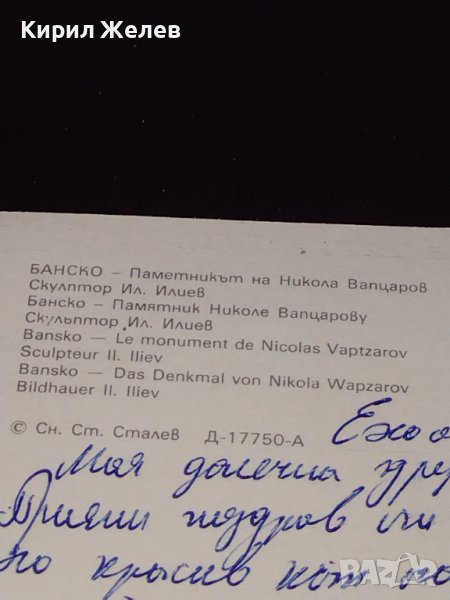 Кирил Желев
БАНСКО – Паметникът на Никола Вапцаров
Скулптор Ил. Илиев
Банско – Памятник Николе Вапцарову
Скульптор Ил. Илиев
Bansko – Le monument de Nicolas Vaptzarov
Sculpteur Il. Iliev
Bansko – Das Denkmal von Nikola Wapzarov
Bildhauer Il. Iliev
© Сн. Ст. Сталев Д-17750-А
Моя далечна
Приеми поздрав
красив
bazar.bg